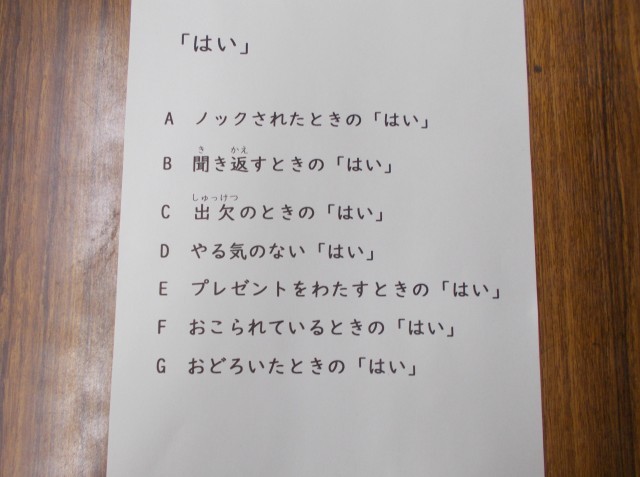 「はい」
A ノックされたときの「はい」
B 聞き返すときの「はい」
C 出欠のときの「はい」
D やる気のない「はい」
E プレゼントをわたすときの「はい」
F おこられているときの「はい」
G おどろいたときの「はい」